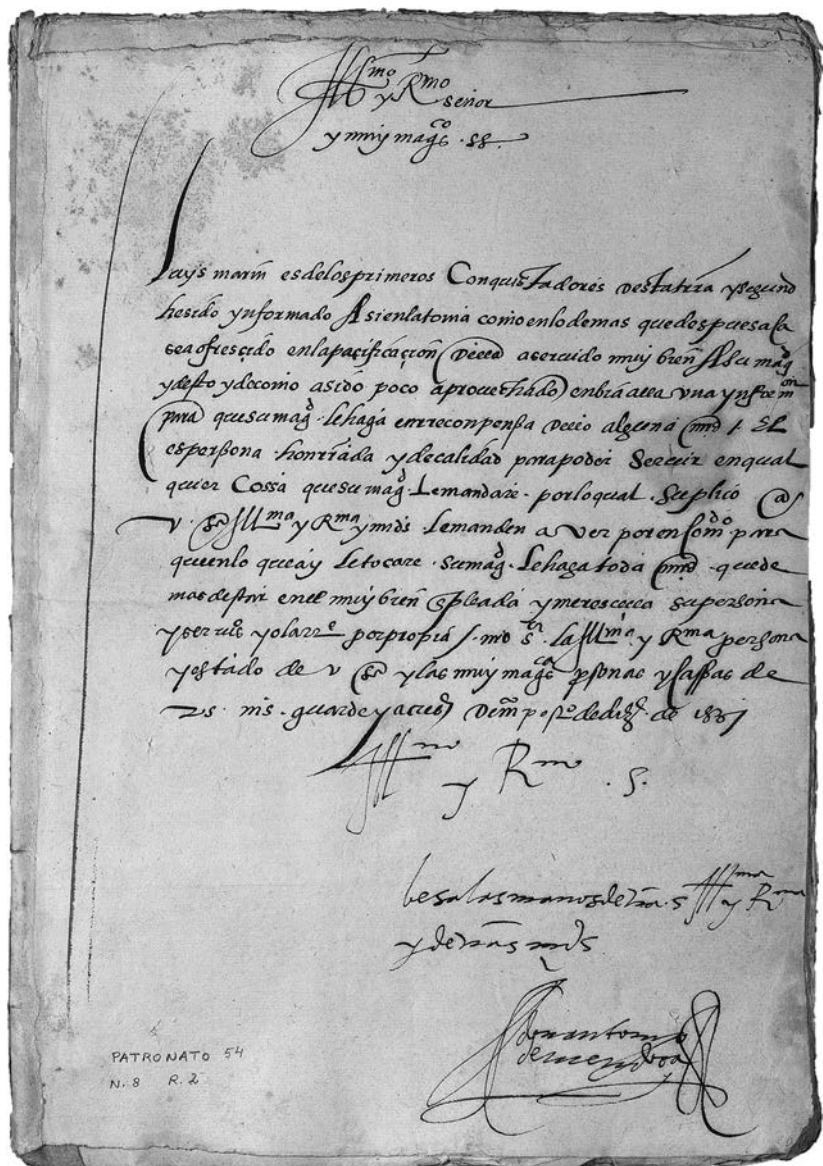 Illmo y Rmo señor
y muy magcos ss.
luys marin es delos primeros Conquistadores desta trra y segund
he sido ynformado Asi en la toma como en lo demas que despues aca
se a ofrescido en la pacificacion della a seruido muy bien A su magd
y desto y de como a sido poco aprouechado enbia alla vna ynformon
para que su magd le haga en recompensa dello alguna mrd / El
es persona honrrada y de calidad para poder Seruir en qual
quier Cossa que su magd le mandare. por lo qual. Suplico a
v. sa Illma y Rma y mds. le manden a ver por encomdo para
que en lo que ay le tocare. su magd. le haga toda mrd. que de
mas de star en el muy bien enpleada y meresceela su persona
y seruios yo la rre por propia / nro sr. la Illma y Rma persona
y estado de v sa y las muy magcas personas y cassas de
vs. ms. guarde y acres de mexco postro de dize de 1537
Illmo y Rmo. S.
besa las manos de vra. s Illma y Rma
y de vras mds
don antonio
de mendoça
PATRONATO 54
N. 8 R. 2